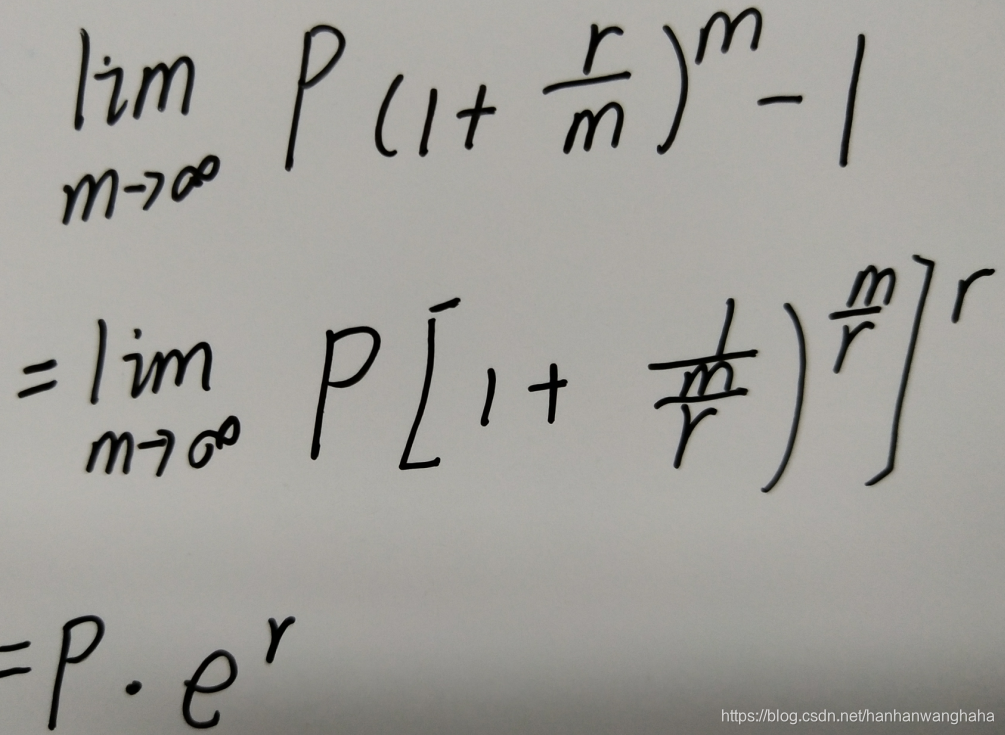 lim m→∞ P(1+ r/m)^m - 1
= lim m→∞ P[1+ 1/(m/r))^(m/r)]^r
= P · e^r
https://blog.csdn.net/hanhanwanghaha